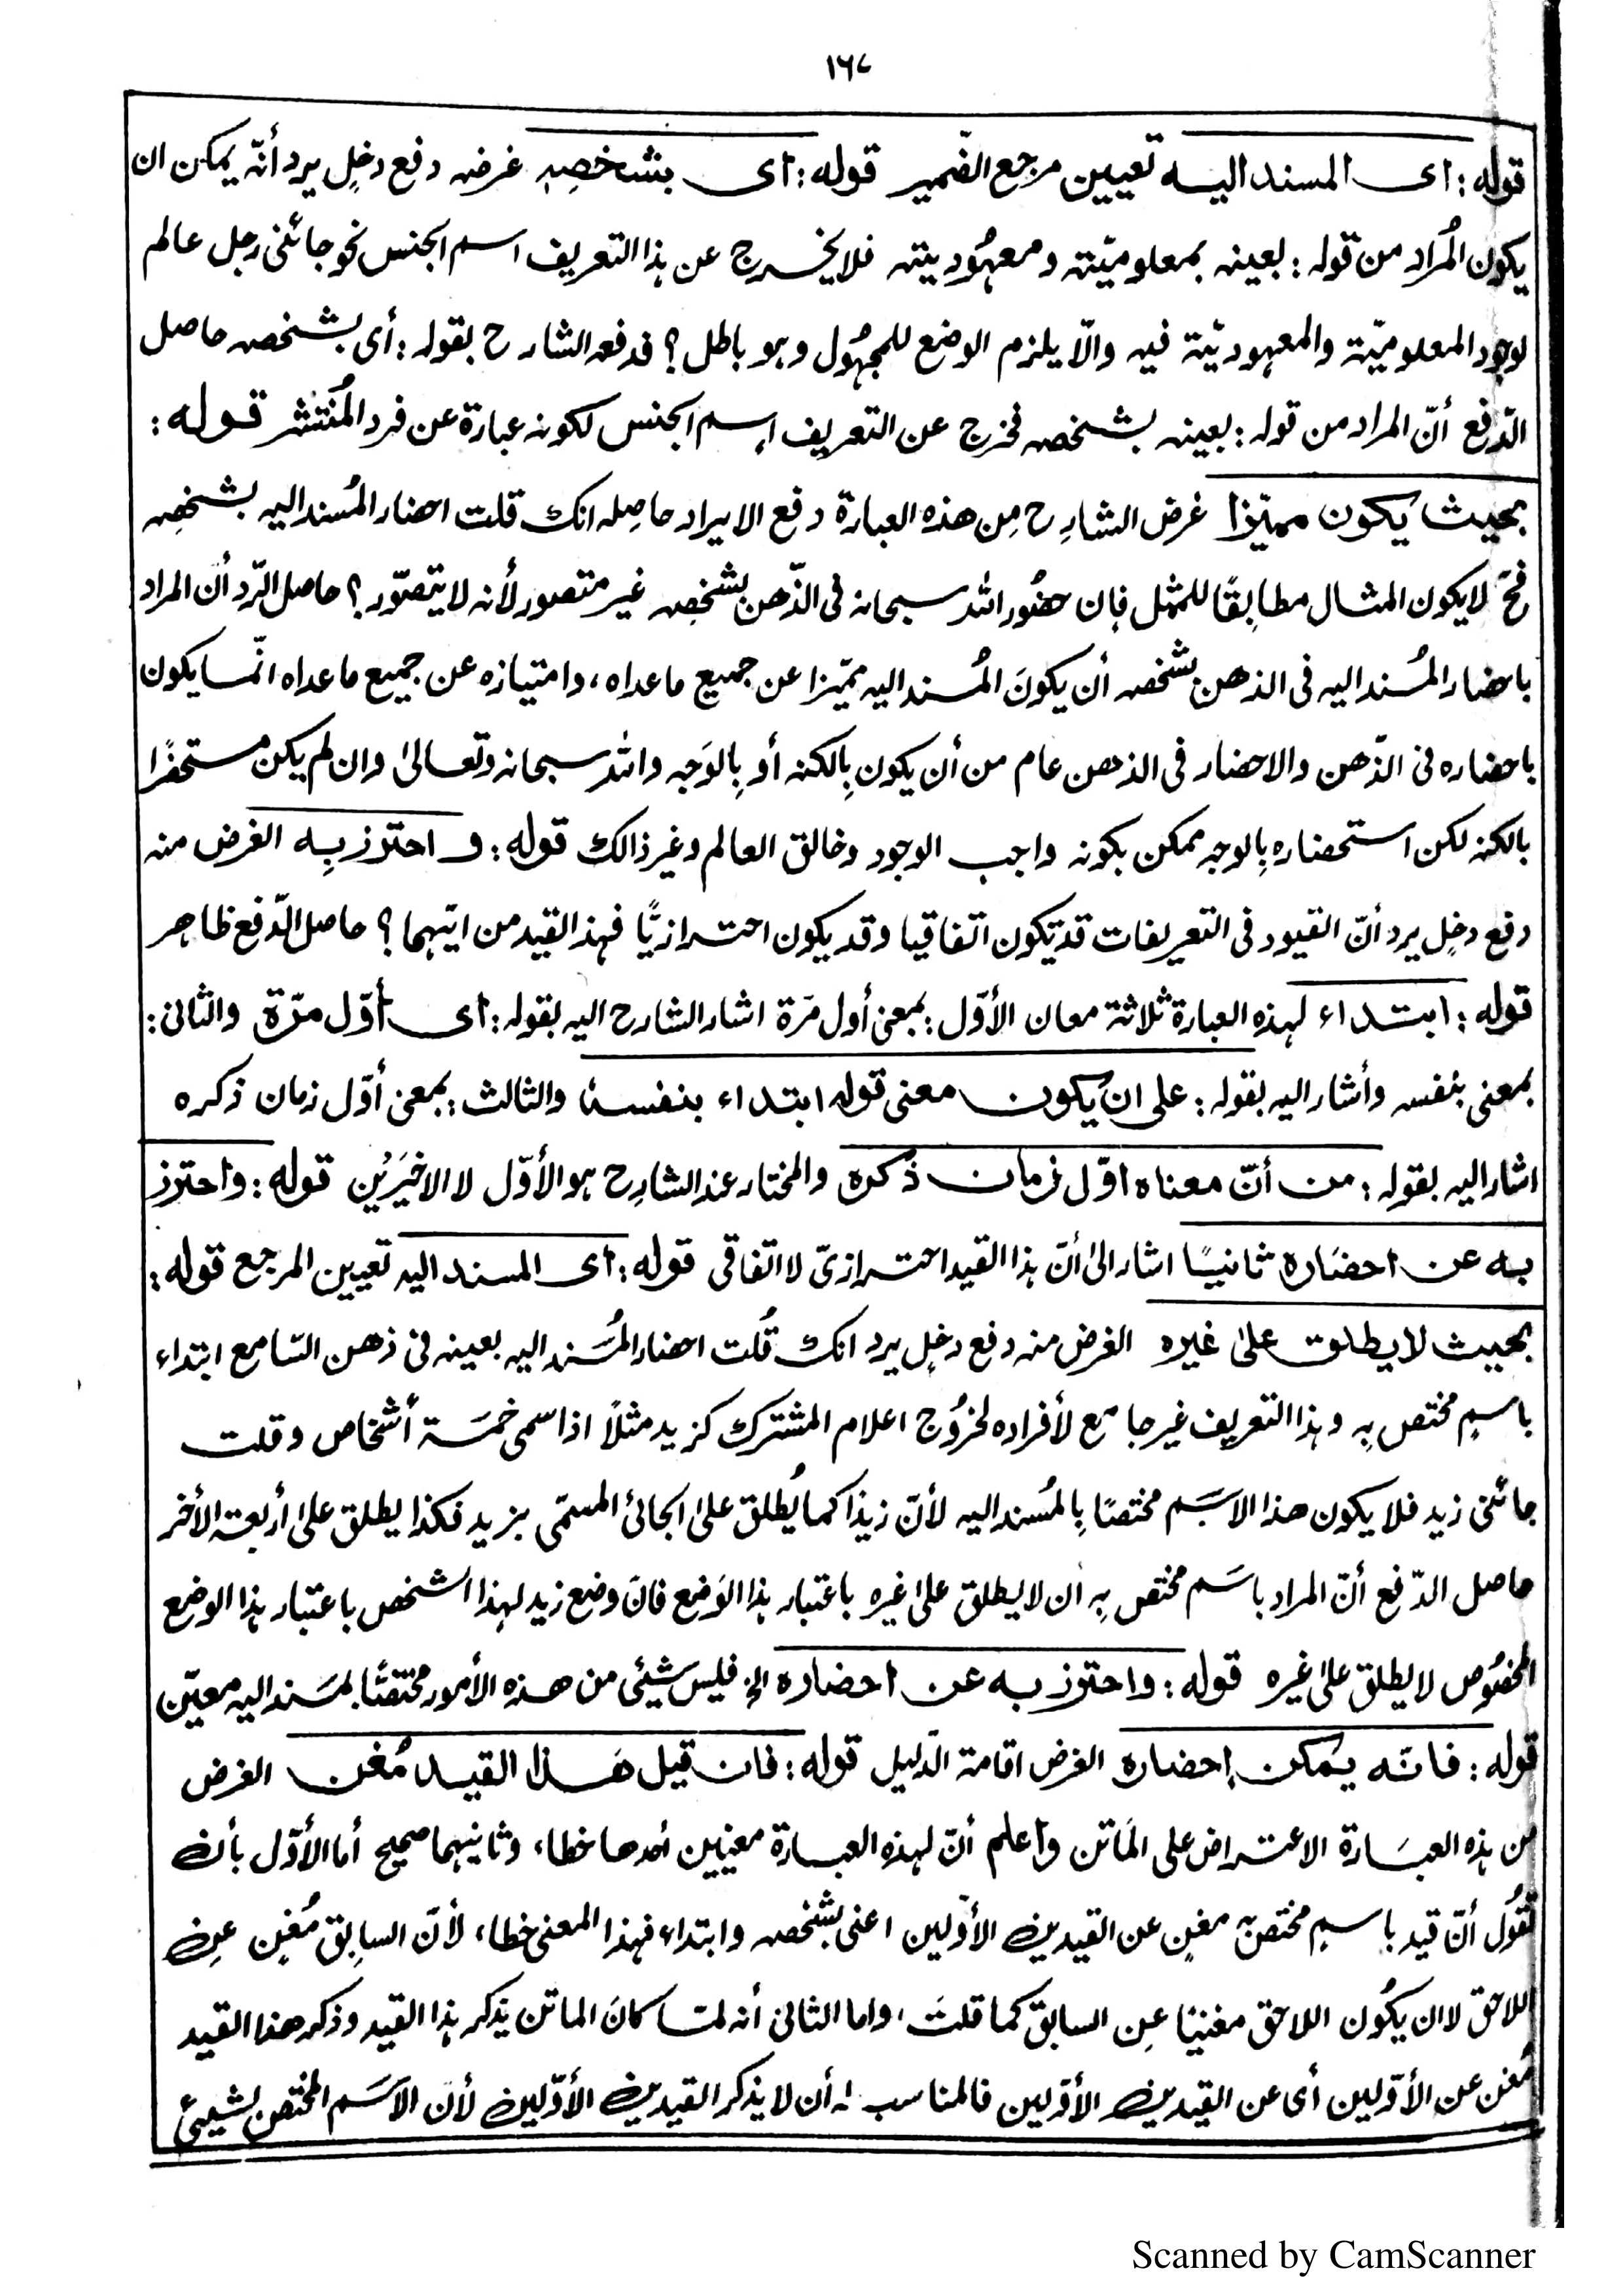 ١٦٧
قوله: اى المسند اليه تعيين مرجع الضّمير قوله: اى بشخصِهٖ غرضہ دفع دخلٍ يرد أنّه يمكن ان
يكون المُراد من قولہ: بعينہ بمعلوميّتہ ومعهُوديتہ فلا يخرج عن ہذا التعريف اسم الجنس نحو جائنی رجل عالم
لوجود المعلوميّة والمعہوديّة فيہ والّا يلزم الوضع للمجهُول وہو باطل؟ فدفعہ الشارح بقولہ: أى بشخصہ حاصل
الدّفع أنّ المراد من قولہ: بعينہ بشخصہ فخرج عن التعريف إسم الجنس لكونہ عبارة عن فرد المُنتشر قوله:
بحيث يكون مميّزا غرض الشارِح مِن هذه العبارة دفع الايراد حاصِلہ انك قلت احضار المُسند اليہ بشخصِہ
فحَ لا يكون المثال مطابِقًا للممثل فإن حضُور اللّٰہ سبحانہ فى الذّهن بشخصِہ غير متصور لأنہ لا يتصوّر؟ حاصل الرّد أن المراد
باحضار المُسند اليہ فى الذهن بشخصہ أن يكونَ المُسند اليہ مميّزا عن جميع ما عداہ، وامتيازہ عن جميع ما عداہ انّما يكون
باحضارہ فى الذّهن والاحضار فى الذهن عام من أن يكون بِالكنہ أو بِالوَجہ واللّٰہ سبحانہ وتعالىٰ وان لم يكن مستحضرًا
بالكنہ لكن استحضارہ بِالوجہ ممكن بكونہ واجب الوجود وخالق العالم وغير ذالك قوله: واحترز بِه الغرض منہ
دفع دخلٍ يرد أنّ القيود فى التعريفات قد تكون اتفاقيا وقد يكون احترازيًّا فهذا القيد من ايّهما؟ حاصل الدّفع ظاهر
قوله: ابتداء لہذہ العبارة ثلاثة معان الأوّل: بمعنى أول مَرّة اشار الشارح اليہ بقولہ: اى أوّل مرّة والثانى:
بمعنى بنفسہ وأشار اليہ بقولہ: على ان يكون معنى قوله ابتداء بنفسہٖ والثالث: بمعنى أوّل زمان ذكرہ
اشار اليہ بقولہ: من أنّ معناه اوّل زمان ذكره والمختار عند الشارِح ہو الأوّل لا الاخيَرَيْن قوله: واحترز
به عن احضَاره ثانيًا اشار الىٰ أنّ ہذا القيد احترازىّ لا اتفاقى قوله: اى المسند اليہ تعيين المرجع قوله:
بحيث لا يطلق علىٰ غيره الغرض منہ دفع دخلٍ يرد انك قُلت احضار المُسَند اليہ بعينہ فى ذهن السّامع ابتداء
باسمٍ مختص بِہٖ وہذا التعريف غير جامع لأفرادہ لخرُوج اعلام المشترك كزيد مثلًا اذا سمى خمسَة أشخاص وقلت
جائنی زيد فلا يكون هذا الاسَم مختصًا بِالمُسند اليہ لأنّ زيدًا كما يُطلق علىٰ الجائى المسمّى بزيد فكذا يطلق علىٰ أربعة الأخر
حاصل الدّفع أنّ المراد باسَم مختص بِہ ان لا يطلق علىٰ غيرہ باعتبار ہذا الوَضع فانَ وضع زيد لہذا الشخص باعتبار ہذا الوضع
المخصُوص لا يطلق علىٰ غيرہ قوله: واحترز به عن احضاره الخ فليس شيئى من هذه الأمور مختصًّا بمسَند اليہ معيّن
قوله: فانّه يمكن إحضاره الغرض اقامة الدّليل قوله: فان قيل هَذا القيد مُغن الغرض
من ہذہ العبَارة الاعتراض على المَاتن واعلم أنّ لہذہ العبارة معنيين أحدها خطاء، وثانيهما صحيح أما الأوّل بأن
تقُول أنّ قيد باسمٍ مختص بہٖ مغنٍ عن القيدين الأوّلين اعنى بشخصہ وابتداء فهذا المعنى خطاء، لأنّ السابِق مُغنٍ عِن
اللاحق لا ان يكُون اللاحق مغنيًا عِن السابق كما قلتَ، واما الثانى أنہ لمّا كانَ الماتن يذكر ہذا القيد وذكر هذا القيد
مُغن عن الأوّلين أى عن القيدين الأوّلين فالمناسب لہ أن لا يذكر القيدين الأوّلين لأنّ الاسَم المختص بشيئ
Scanned by CamScanner